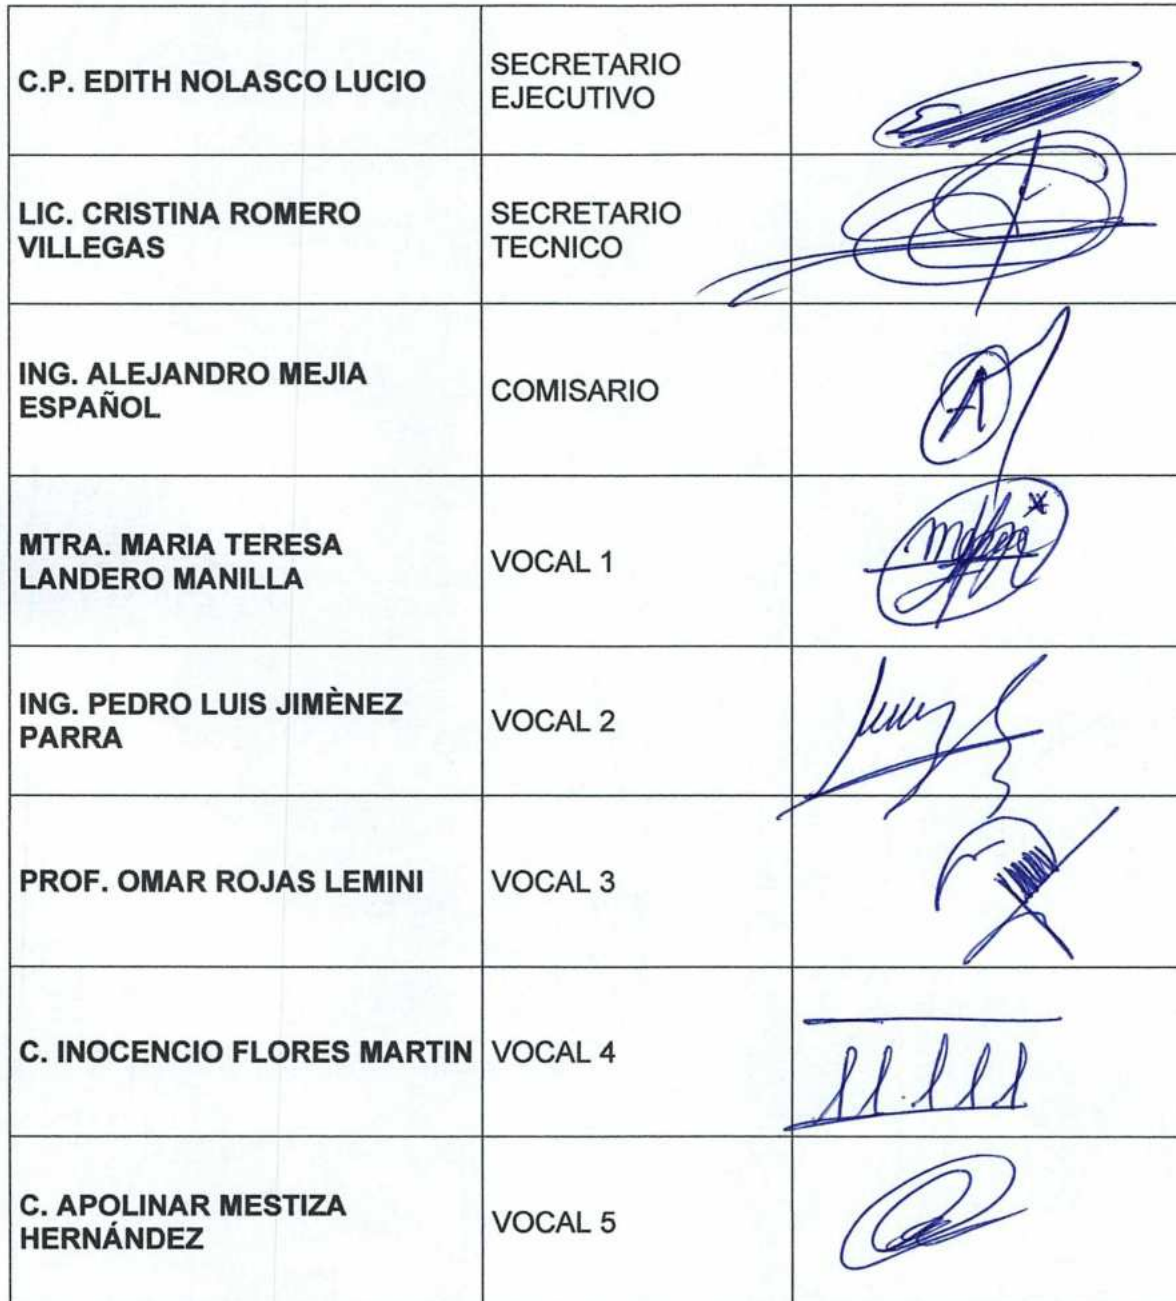 C.P. EDITH NOLASCO LUCIO
SECRETARIO
EJECUTIVO
LIC. CRISTINA ROMERO
VILLEGAS
SECRETARIO
TECNICO
ING. ALEJANDRO MEJIA
ESPAÑOL
COMISARIO
A
MTRA. MARIA TERESA
LANDERO MANILLA
VOCAL 1
ING. PEDRO LUIS JIMÈNEZ
PARRA
VOCAL 2
PROF. OMAR ROJAS LEMINI
VOCAL 3
C. INOCENCIO FLORES MARTIN
VOCAL 4
C. APOLINAR MESTIZA
HERNÁNDEZ
VOCAL 5